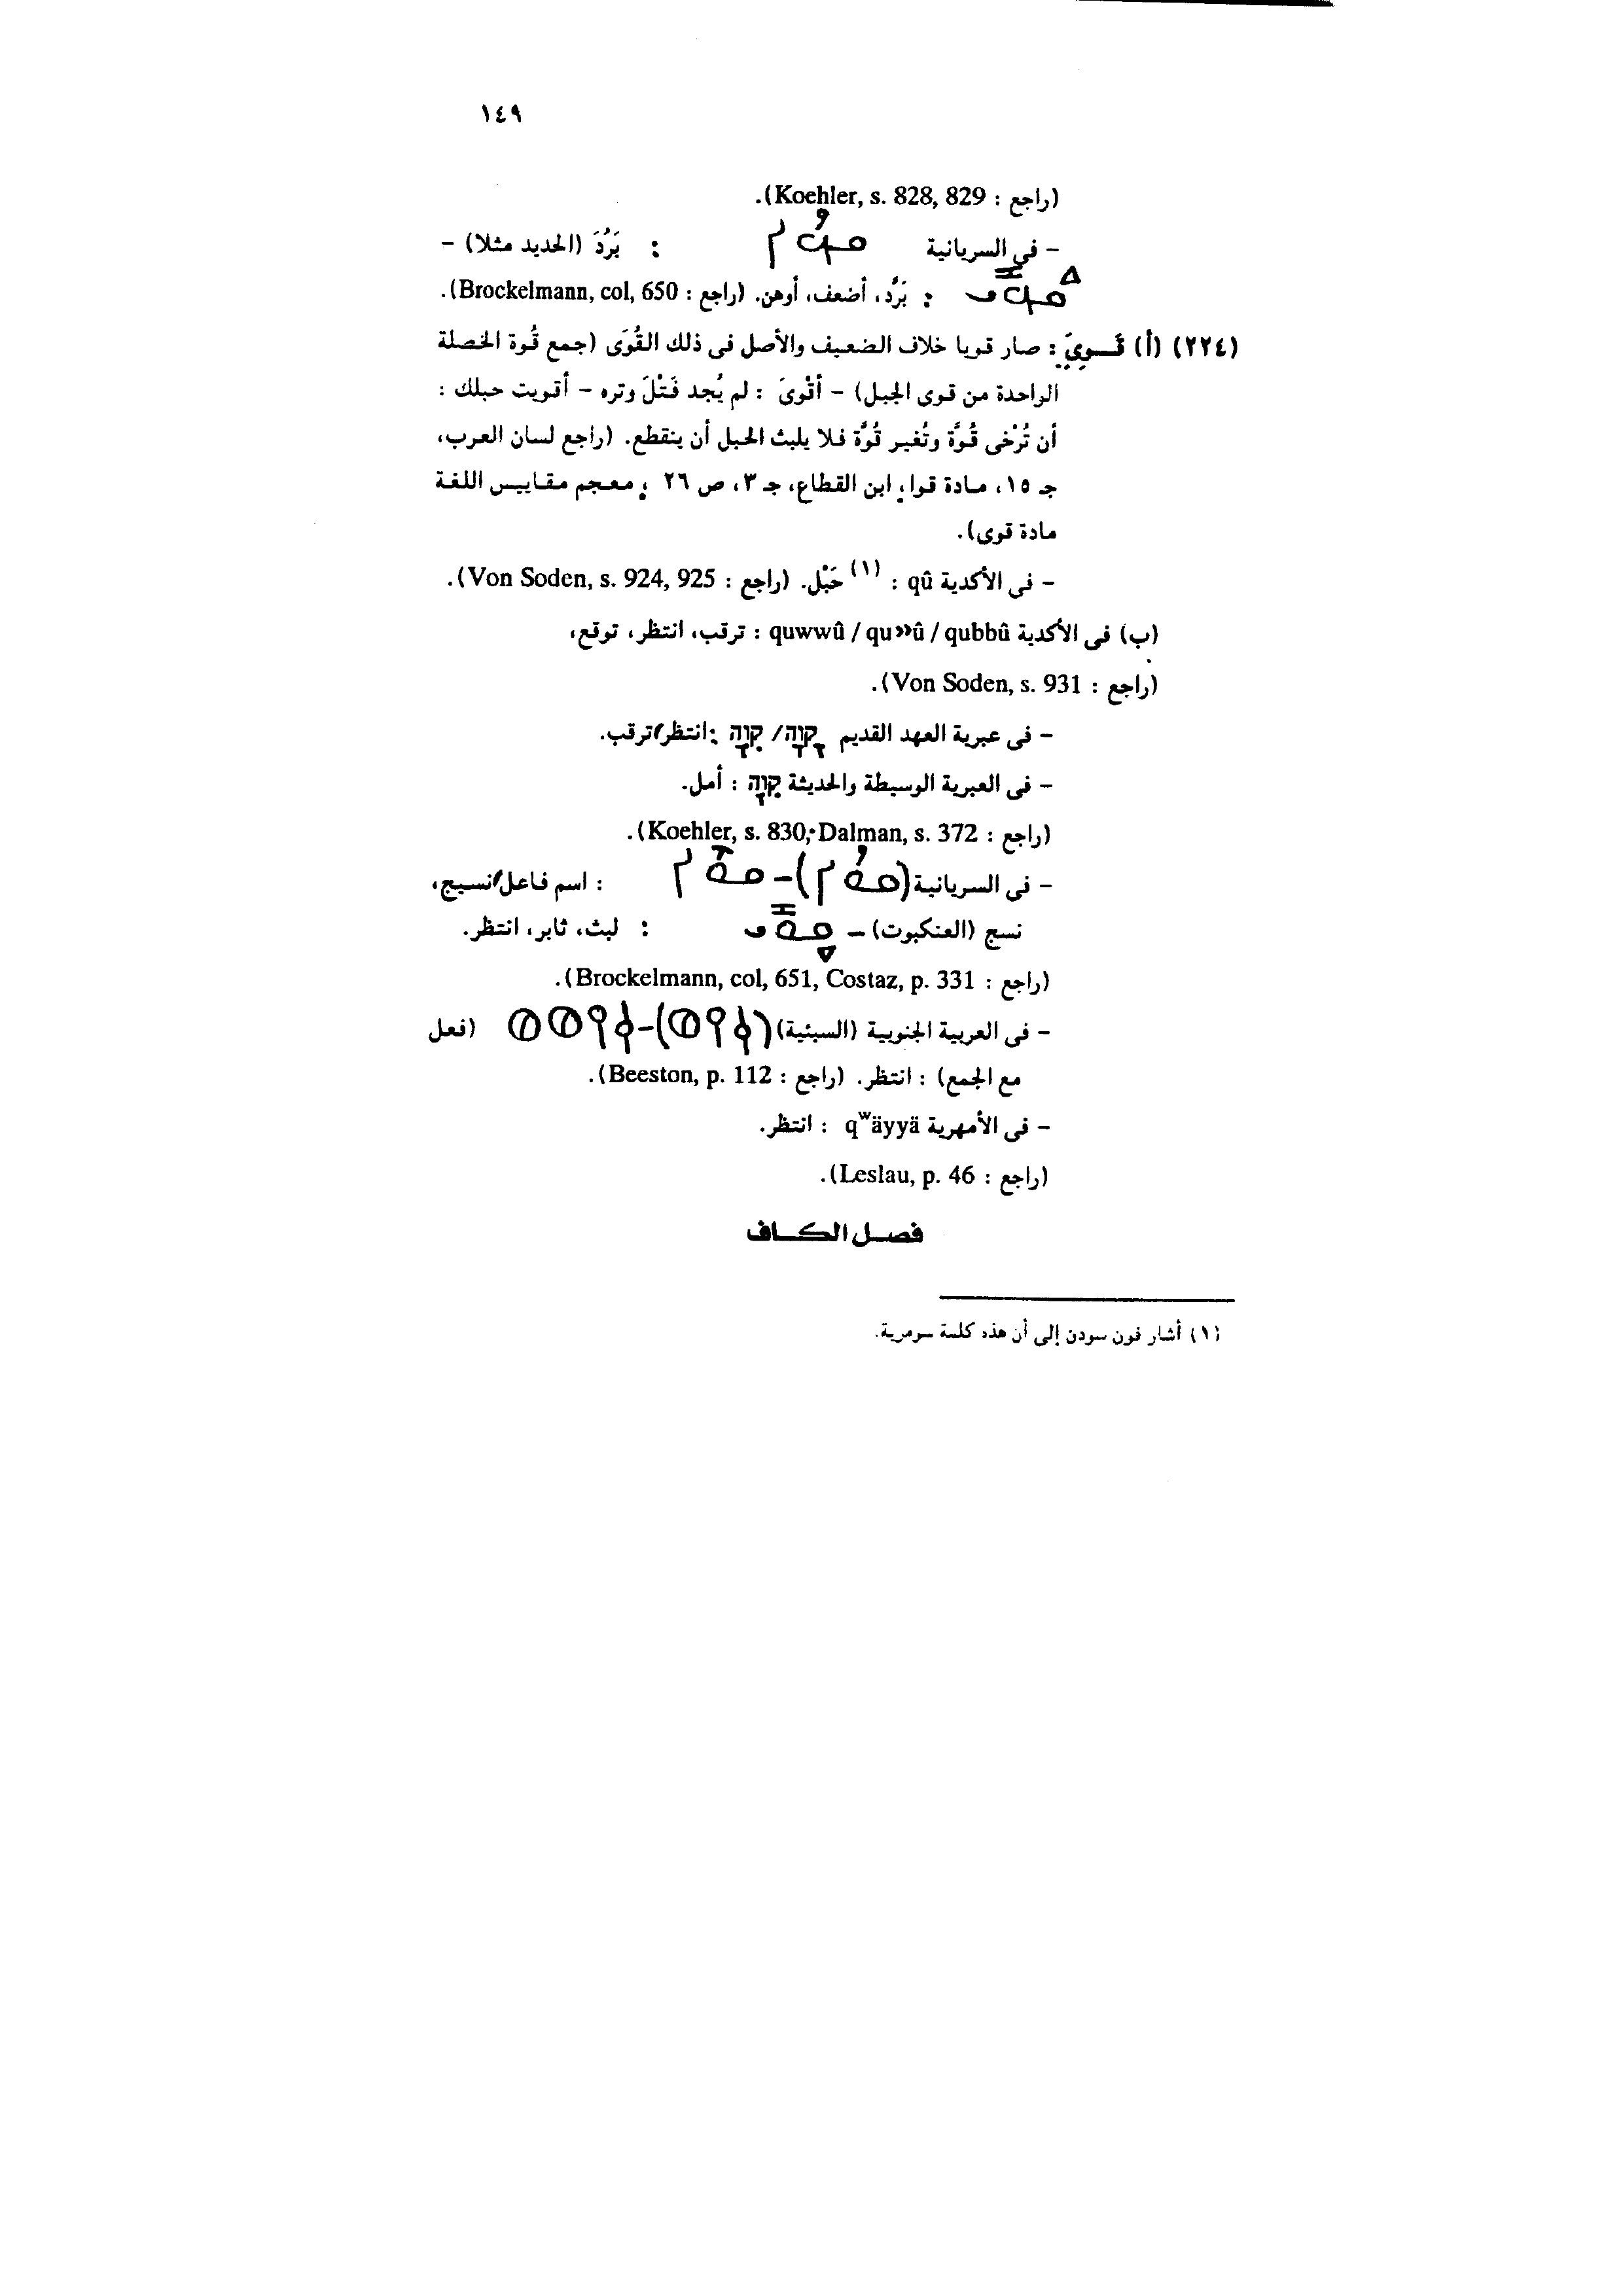 ١٤٩
(راجع : Koehler, s. 828, 829).
– فى السريانية : بَرُدَ (الحديد مثلا) –
: بَرَّد، أضعف، أوهن. (راجع : Brockelmann, col, 650).
(٢٢٤) (أ) قَـوِيَ : صار قويا خلاف الضعيف والأصل فى ذلك القُوَى (جمع قُوة الخصلة
الواحدة من قوى الجبل) – أقْوىَ : لم يُجد فَتْلَ وتره – أقويت حبلك :
أن تُرْخى قُوَّة وتُغير قُوَّة فلا يلبث الحبل أن ينقطع. (راجع لسان العرب،
جـ ١٥، مادة قوا، ابن القطاع، جـ ٣، ص ٢٦ ؛ معجم مقاييس اللغة
مادة قوى).
– فى الأكدية qû : (١) حَبْل. (راجع : Von Soden, s. 924, 925).
(ب) فى الأكدية quwwû / qu»û / qubbû : ترقب، انتظر، توقع،
(راجع : Von Soden, s. 931).
– فى عبرية العهد القديم קָוָה/ קִוָּה : انتظر/ترقب.
– فى العبرية الوسيطة والحديثة קִוָּה : أمل.
(راجع : Koehler, s. 830; Dalman, s. 372).
– فى السريانية : اسم فاعل/نسيج،
نسج (العنكبوت) – : لبث، ثابر، انتظر.
(راجع : Brockelmann, col, 651, Costaz, p. 331).
– فى العربية الجنوبية (السبئية) (𐩤𐩥𐩺)–𐩤𐩺𐩥𐩥 (فعل
مع الجمع) : انتظر. (راجع : Beeston, p. 112).
– فى الأمهرية qʷäyyä : انتظر.
(راجع : Leslau, p. 46).
فصل الكاف
(١) أشار فون سودن إلى أن هذه كلمة سومرية.